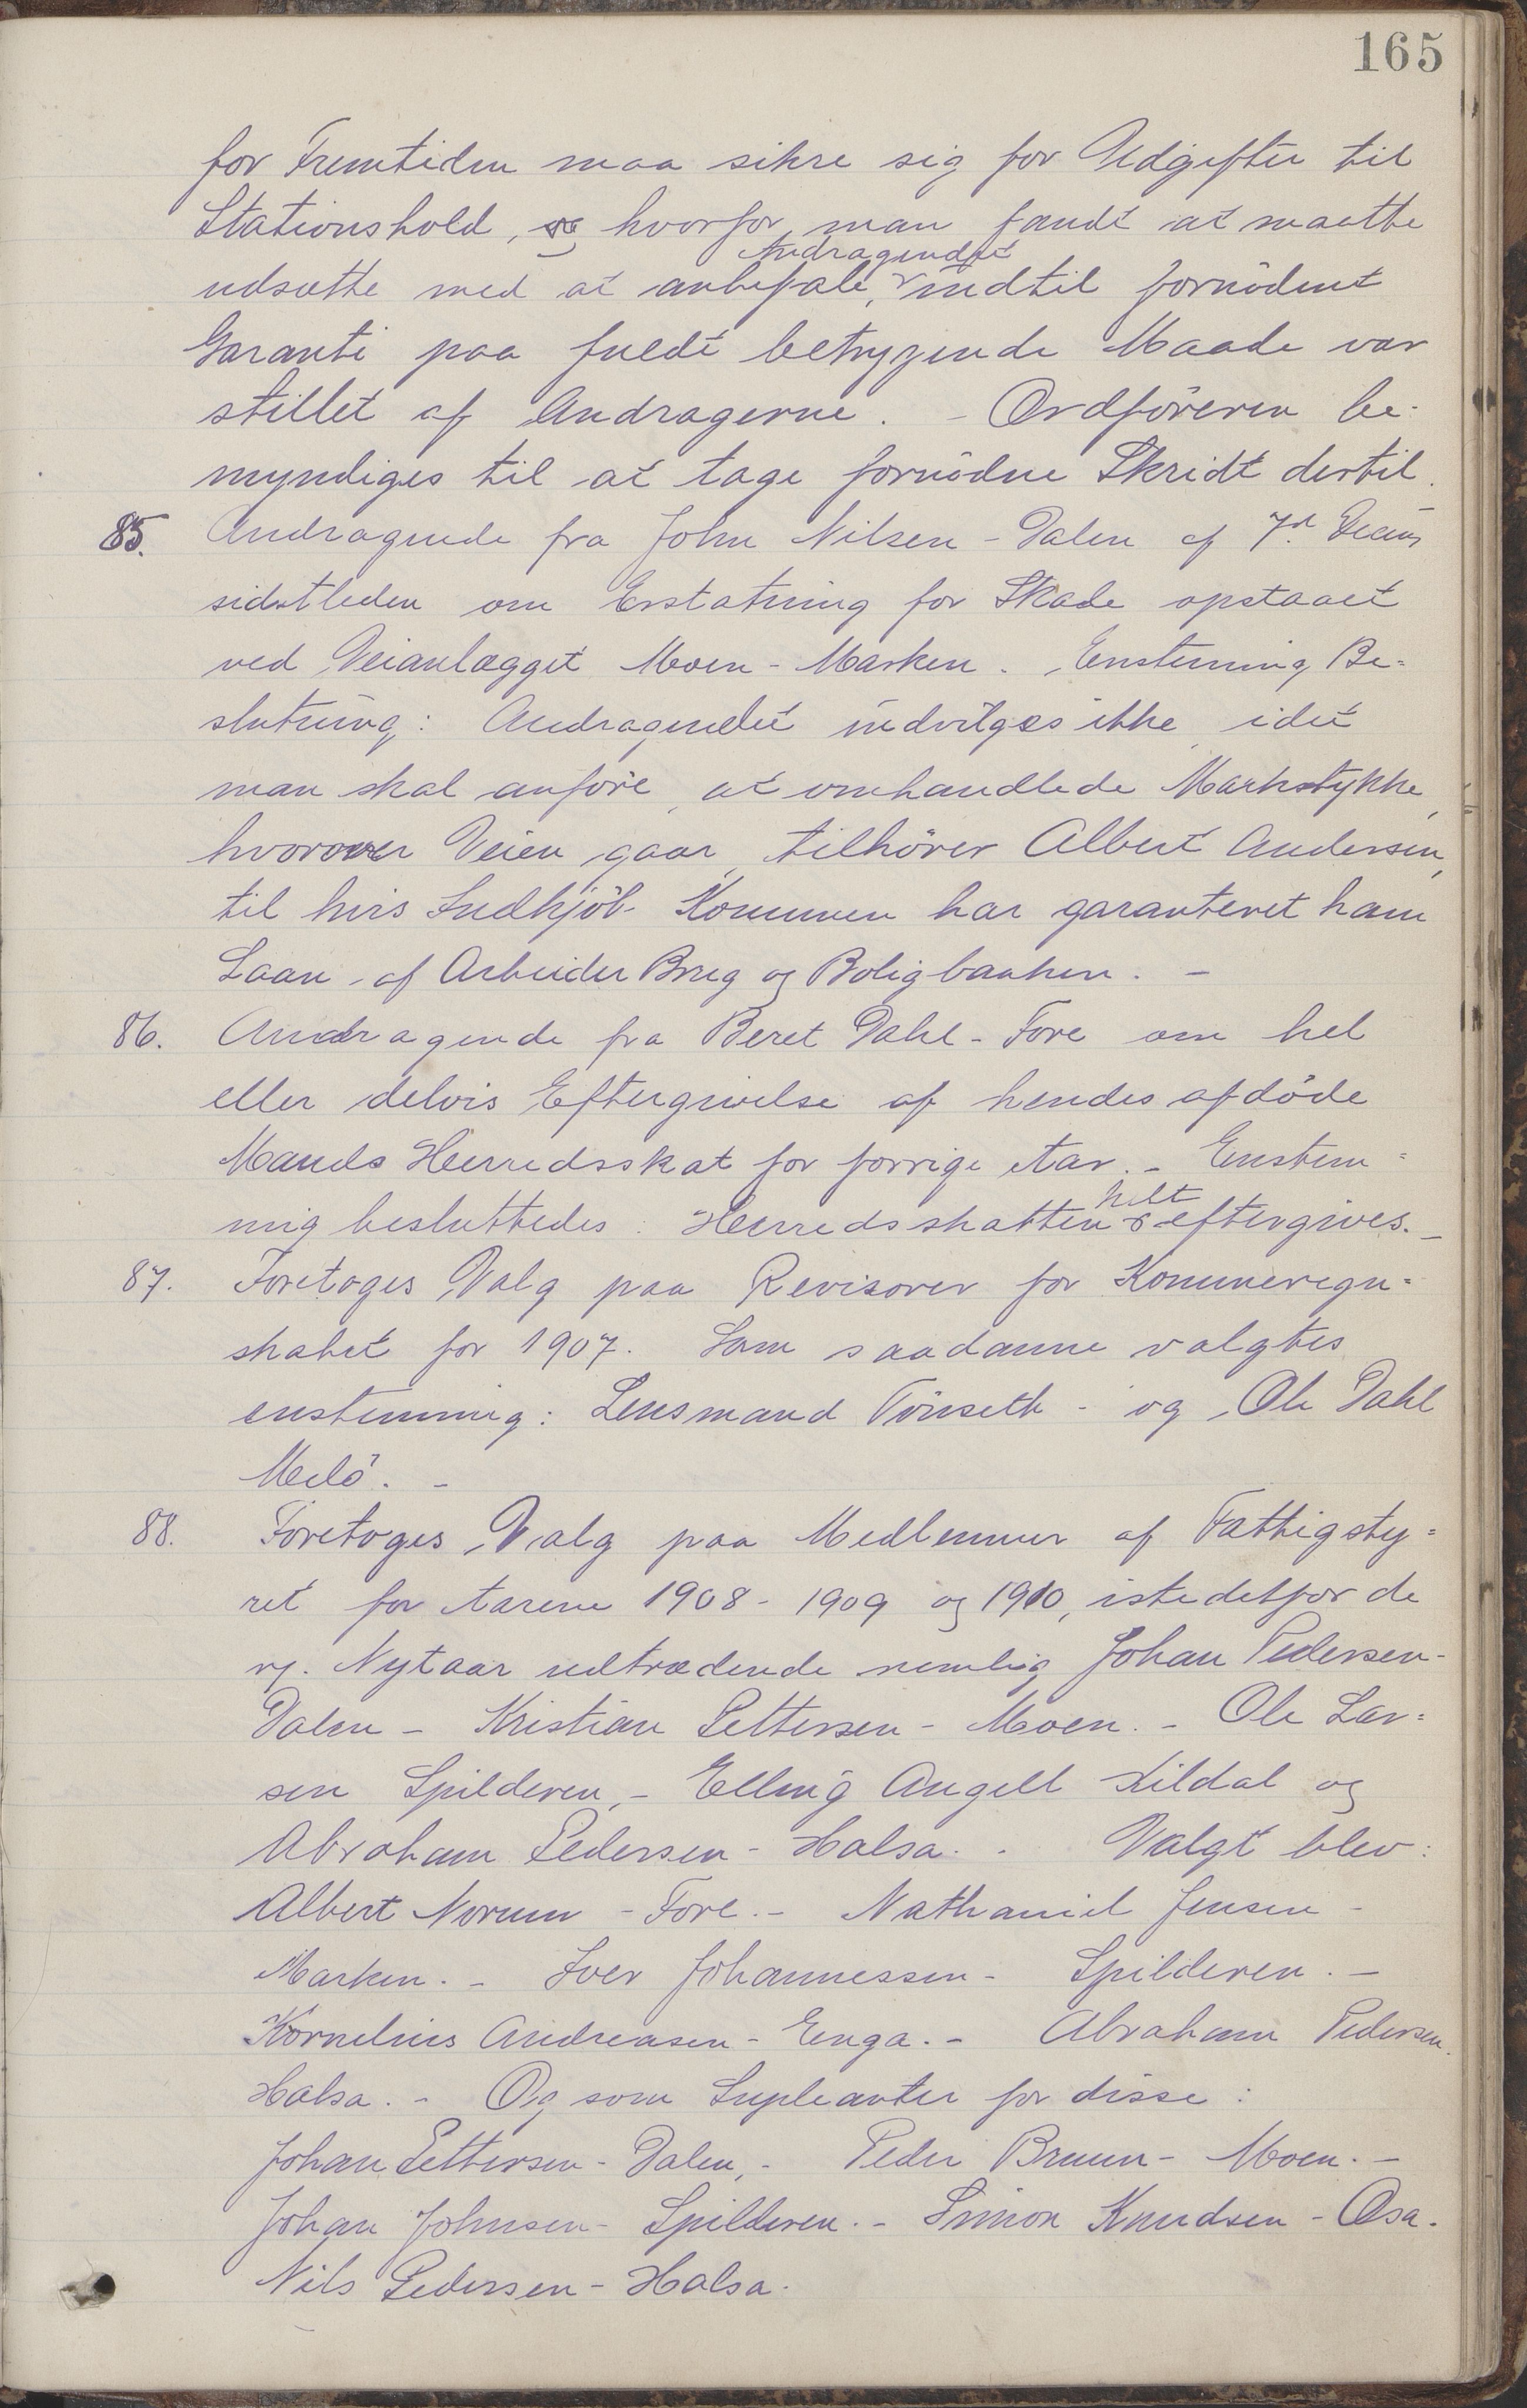 165
for Fremtiden maa sikre sig for Udgifter til
Stationshold, og hvorfor man fandt at maatte
Andragendet
udsætte med at anbefale, indtil fornødent
Garanti paa fuldt betryggende Maade var
stillet af Andragerne. - Ordføreren be-
myndiges til at tage fornødne Skridt dertil.
85. Andragende fra John Nilsen - Dalen af 7d
sidstleden om Erstatning for Skade opstaaet
ved Veianlægget Moen - Marken. Enstemmig Be=
slutning: Andragendet indvilges ikke, idet
man skal anføre, at omhandlede Markstykke,
hvorover Veien gaar, tilhører Albert Andersen,
til hvis Indkjøb Kommunen har garanteret ham
Laan af Arbeider Brug og Boligbanken. -
86. Andragende fra Beret Dahl - Fore om hel
eller delvis Eftergivelse af hendes afdøde
Mands Herredsskat for forrige Aar. - Enstem=
helt
mig besluttedes: Herredsskatten eftergives. -
87. Foretoges Valg paa Revisorer for Kommuneregn=
skabet for 1907. Som saadanne valgtes
enstemmig: Lensmand Tønseth - og Ole Dahl
Melø. -
88. Foretoges Valg paa Medlemmer af Fattigsty=
ret for Aarene 1908 - 1909 og 1910, istedetfor de
v/. Nytaar udtrædende nemlig Johan Pedersen -
Dalen - Kristian Pettersen - Moen. - Ole Lar=
sen Spilderen, - Elling Angell Kildal og
Abraham Pedersen - Halsa. - Valgt blev:
Albert Norum - Fore. - Nathaniel Jensen -
Marken. - Iver Johannessen - Spilderen. -
Kornelius Andreasen - Enga. - Abraham Pedersen
Halsa. - Og som Supleanter for disse:
Johan Pettersen - Dalen, - Peder Bruun - Moen. -
Johan Johnsen - Spilderen. - Simon Knudsen - Osa.
Nils Pedersen - Halsa.